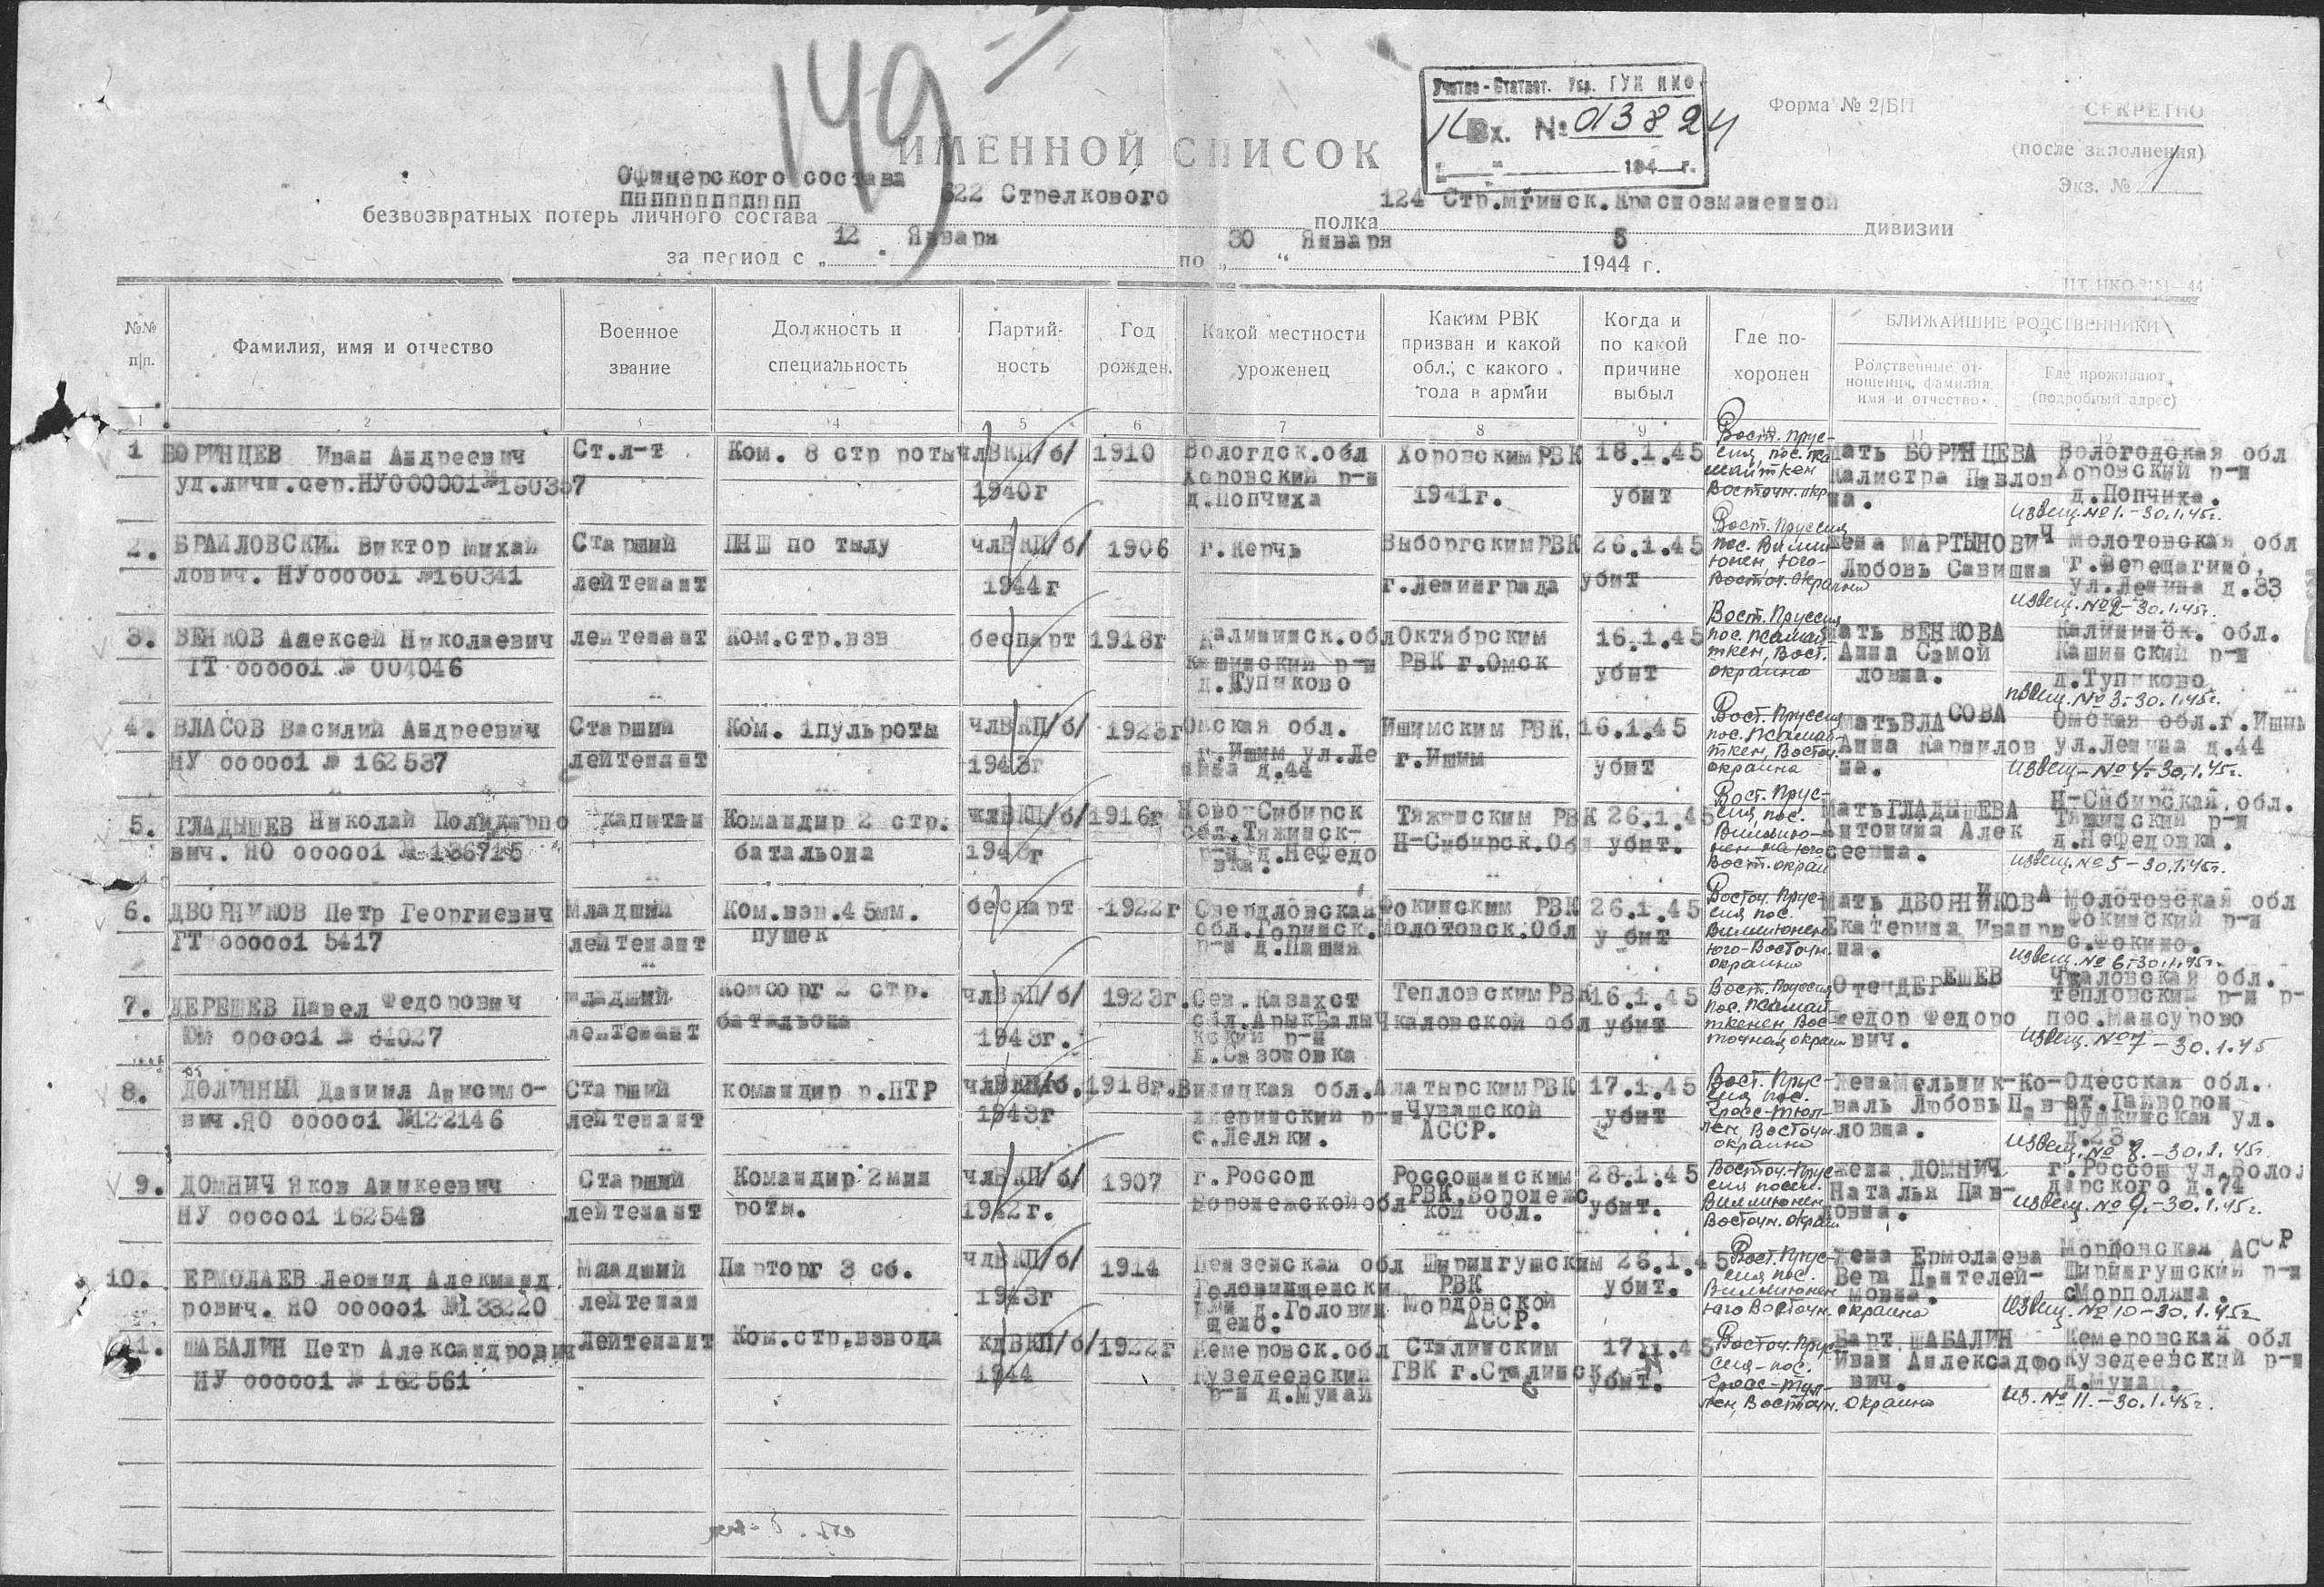 149
Учетно-Статист. Упр. ГУК НКО
Вх. № 013824
194 г.
Форма № 2/БП
СЕКРЕТНО
(после заполнения)
Экз. № 1
ИМЕННОЙ СПИСОК
Офицерского состава
безвозвратных потерь личного состава 622 Стрелкового полка 124 Стр.мгинск.Краснознаменной дивизии
за период с „12" Января по „30" Января 1944 г.
5
№№ п/п.
Фамилия, имя и отчество
Военное звание
Должность и специальность
Партийность
Год рожден.
Какой местности уроженец
Каким РВК призван и какой обл.; с какого года в армии
Когда и по какой причине выбыл
Где похоронен
БЛИЖАЙШИЕ РОДСТВЕННИКИ
Родственные отношения, фамилия, имя и отчество
Где проживают (подробный адрес)
1 2 3 4 5 6 7 8 9
1 БОРИНЦЕВ Иван Андреевич Ст.л-т Ком. 8 стр роты члВКП/б/ 1910 Вологдск.обл Хоровским РВК 18.1.45 Вост. Прус-
сия, пос. мать БОРИНЦЕВА Вологодская обл
уд.личн.сер.НУ000001№160357 1940г Харовский р-н 1941г. убит Калистра Павлов Хоровский р-н
д.Попчиха Восточн. окр на. д.Попчиха.
извещ. №1.-30.1.45г.
2. БРАИЛОВСКИЙ Виктор Михай Старший ПНШ по тылу члВКП/б/ 1906 г.Керчь Выборгским РВК 26.1.45 Вост. Пруссия
пос. Вилли- жена МАРТЫНОВИЧ Молотовская обл
лович. НУ000001 №160341 лейтенант 1944г г.Ленинграда убит юнен, Юго- Любовь Савишна г.Верещагино,
Восточ. Окраина ул.Ленина д.33
извещ. №2-30.1.45г.
3. ВЕНКОВ Алексей Николаевич лейтенант Ком.стр.взв беспарт 1918г Калининск.обл Октябрским 16.1.45 Вост. Пруссия
мать ВЕНКОВА Калининск. обл.
ГТ 000001 № 004046 Кашинский р-н РВК г.Омск убит ткен, Вост. Анна Самой Кашинский р-н
д.Тупиково окраина ловна. д.Тупиково
извещ. №3-30.1.45г.
4. ВЛАСОВ Василий Андреевич Старший Ком. 1пульроты члВКП/б/ 1923г Омская обл. Ишимским РВК, 16.1.45 Вост. Пруссия
мать ВЛАСОВА Омская обл.г.Ишим
НУ 000001 № 162537 лейтенант 1943г г.Ишим ул.Ле г.Ишим убит ткен, Восточ. Анна Карпилов ул.Ленина д.44
нина д.44 окраина на. извещ-№4-30.1.45г.
5. ГЛАДЫШЕВ Николай Поликарпо капитан Командир 2 стр. члВКП/б/ 1916г Ново-Сибирск Тяжинским РВК 26.1.45 Вост. Прус-
сия, пос. Мать ГЛАДЫШЕВА Н-Сибирская обл.
вич. ЯО 000001 № 136715 батальона обл.Тяжинск- Н-Сибирск.Обл убит. Антонина Алек Тяжинский р-н
р-н д.Нефедо нен на юго сеевна. д.Нефедовка.
вка. Вост. окраи извещ. №5-30.1.45г.
6. ДВОРНИКОВ Петр Георгиевич Младший Ком.взв.45мм. беспарт 1922г Свердловская Фокинским РВК 26.1.45 Восточ. Прус-
сия, пос. мать ДВОРНИКОВА Молотовская обл
ГТ 000001 5417 лейтенант пушек обл.Горинск. Молотовск.Обл убит Виллюнен Екатерина Ивановн Фокинский р-н
юго-Восточн. на. с.Фокино.
окраина извещ. №6-30.1.45г.
7. ДЕРЕШЕВ Павел Федорович младший комсорг 2 стр. члВКП/б/ 1923г. Сев.Казахст Тепловским РВК 16.1.45 Вост. Пруссия
Отец ДЕРЕШЕВ Чкаловская обл.
000001 № 64027 лейтенант батальона 1943г. обл.АрыкБалы Чкаловской обл убит Федор Федоро тепловский р-н
кский р-н точная, окраин вич. пос.Мансурово
извещ. №7-30.1.45
8. ДОЛИННЫЙ Даниил Анисимо- Старший командир р.ПТР члВКП/б. 1918г. Винницкая обл. Алатырским РВК 17.1.45 Вост. Прус-
сия пос. жена Мельник-Ко- Одесская обл.
вич.ЯО 000001 №122146 лейтенант 1943г Чувашской убит Гросс-Тюл- валь Любовь Пав ст.Гайворон
с.Леляки. АССР. лен, Восточн. ловна. Пушкинская ул.
окраина д.23.
извещ. №8.-30.1.45г.
9. ДОМНИЧ Яков Аникеевич Старший Командир 2мин члВКП/б/ 1907 г.Россош Россошанским 28.1.45 Восточ. Прус-
сия посел. жена ДОМНИЧ г.Россош ул.Воло
НУ 000001 162548 лейтенант роты. 1942г. Воронежской обл РВК,Воронежс убит. Виллюнен Наталья Пав- дарского д.74
кой обл. Восточн. Окраи ловна. извещ. №9-30.1.45г.
10. ЕРМОЛАЕВ Леонид Алекманд Младший Парторг 3 сб. члВКП/б/ 1914 Пензенская обл Ширингушским 26.1.45 Вост. Прус-
сия, пос. жена Ермолаева Мордовская АССР
рович. ЯО 000001 №133220 лейтенан 1943г Головинщенски РВК убит. Виллюнен Вера Пантелей- Ширингушский р-н
д.Головин Мордовской Юго Восточн. окраина мовна.
щено. АССР. извещ. №10-30.1.45г
11. ШАБАЛИН Петр Александрович Лейтенант Ком.стр.взвода кдВКП/б/ 1922г Кемеровск.обл Сталинским 17.1.45 Восточ. Прус-
сия-пос. Барт ШАБАЛИН Кемеровская обл
НУ 000001 № 162561 1944 Кузедеевский ГВК г.Сталинск убит. Гросс-Тюл- Иван Аилексадро Кузедеевский р-н
р-н д.Мунай лен, Восточн. Окраина вич. д.Мунай.
из. №11.-30.1.45г.